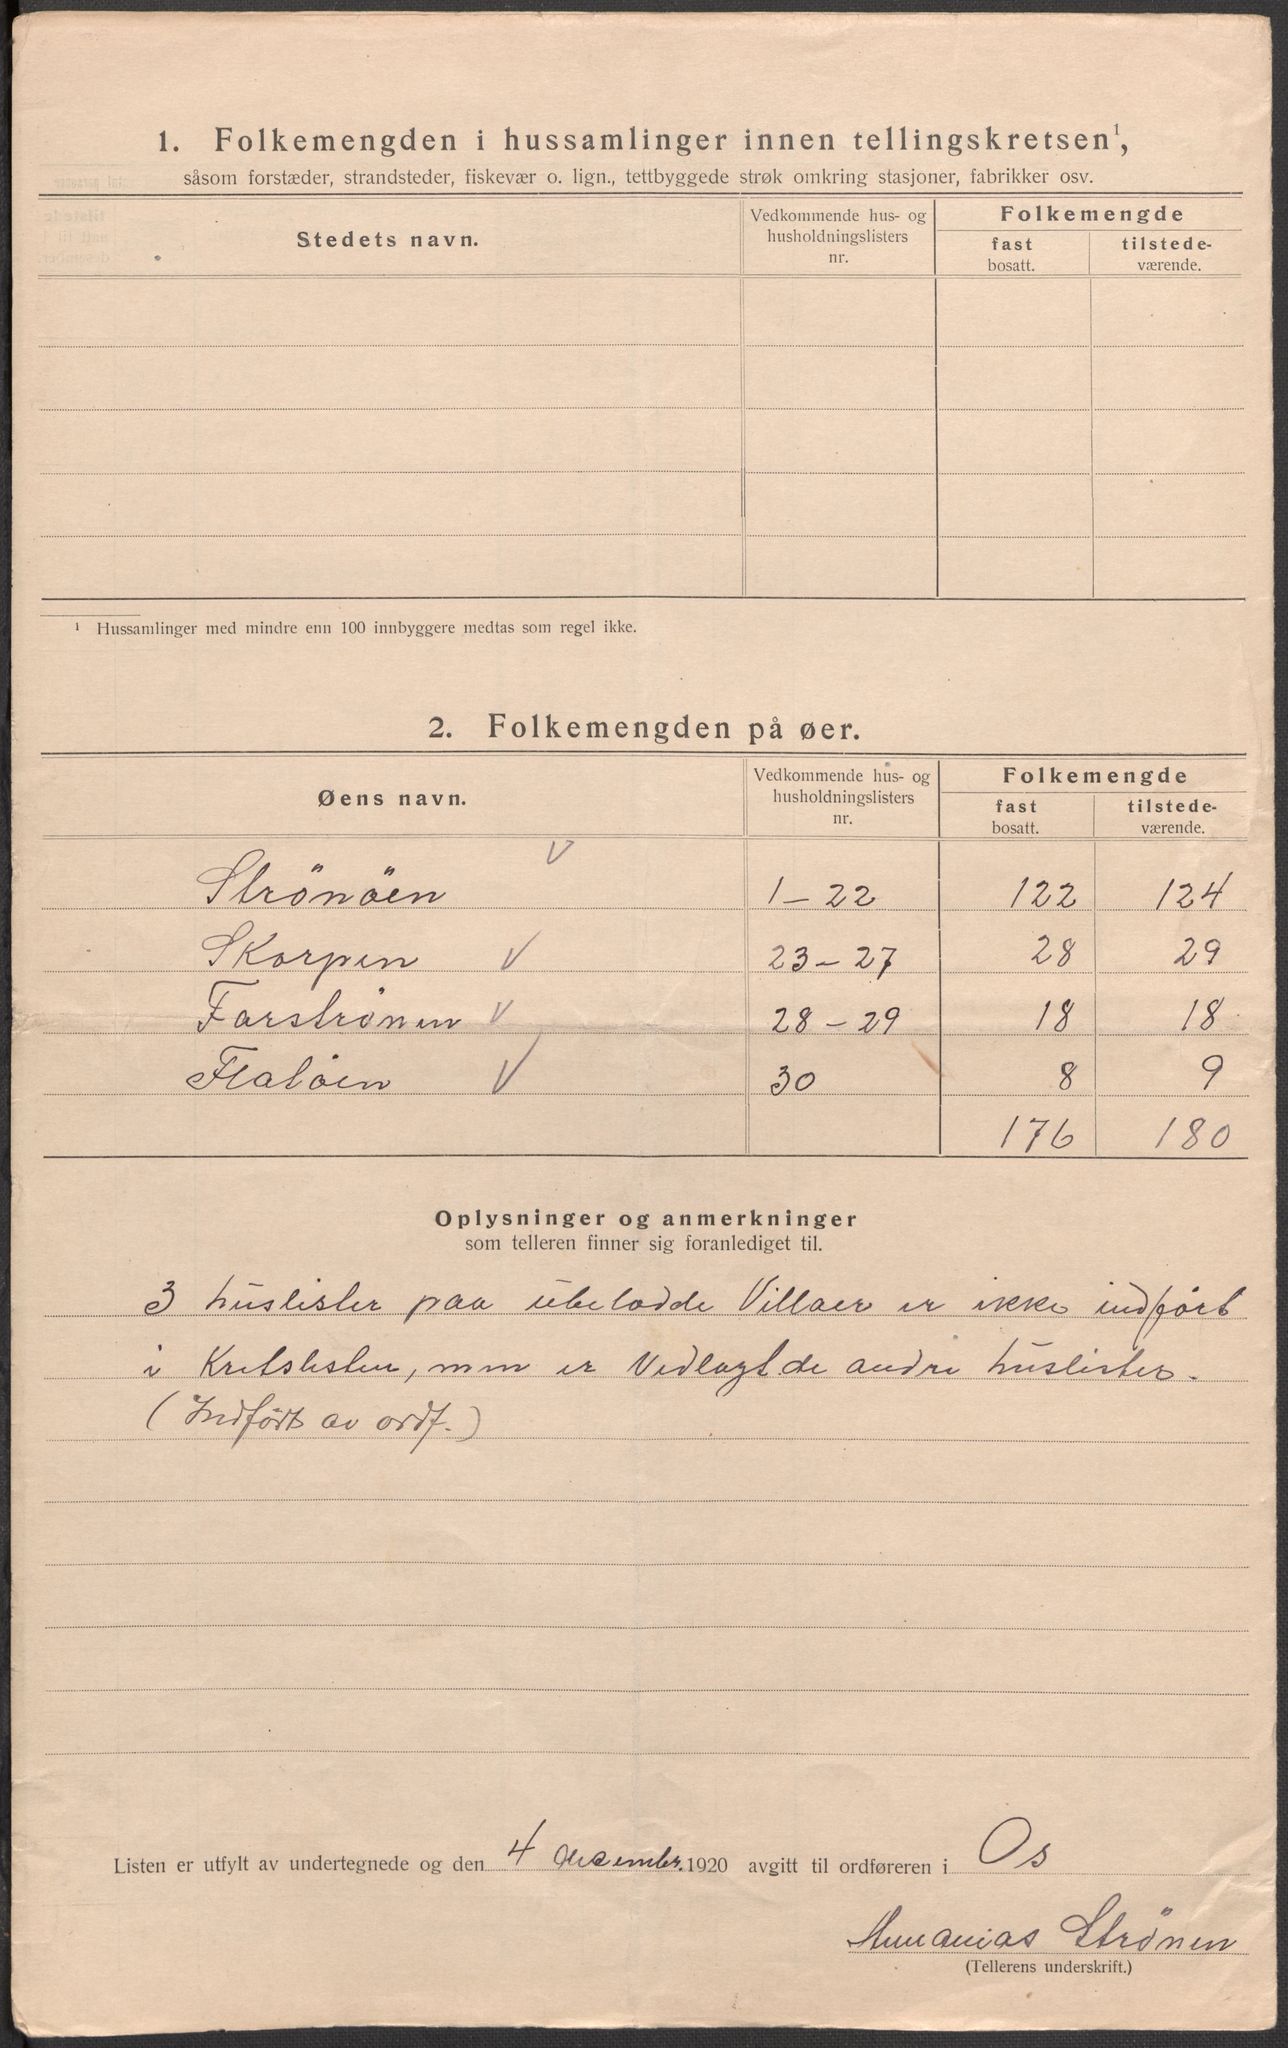 1. Folkemengden i hussamlinger innen tellingskretsen¹,
såsom forstæder, strandsteder, fiskevær o. lign., tettbyggede strøk omkring stasjoner, fabrikker osv.
Stedets navn. Vedkommende hus- og husholdningslisters nr. Folkemengde
fast bosatt. tilstede-værende.
¹ Hussamlinger med mindre enn 100 innbyggere medtas som regel ikke.
2. Folkemengden på øer.
Øens navn. Vedkommende hus- og husholdningslisters nr. Folkemengde
fast bosatt. tilstede-værende.
Strönöen V 1-22 122 124
Skorpen V 23-27 28 29
Farströnen V 28-29 18 18
Flatöen V 30 8 9
176 180
Oplysninger og anmerkninger
som telleren finner sig foranlediget til.
3 huslister paa ubebodde Villaer er ikke indfört
i Kretslisten, men er Vedlagt de andre huslister.
(Indført av ordf.)
Listen er utfylt av undertegnede og den 4 december 1920 avgitt til ordføreren i Os
Strönen
(Tellerens underskrift.)